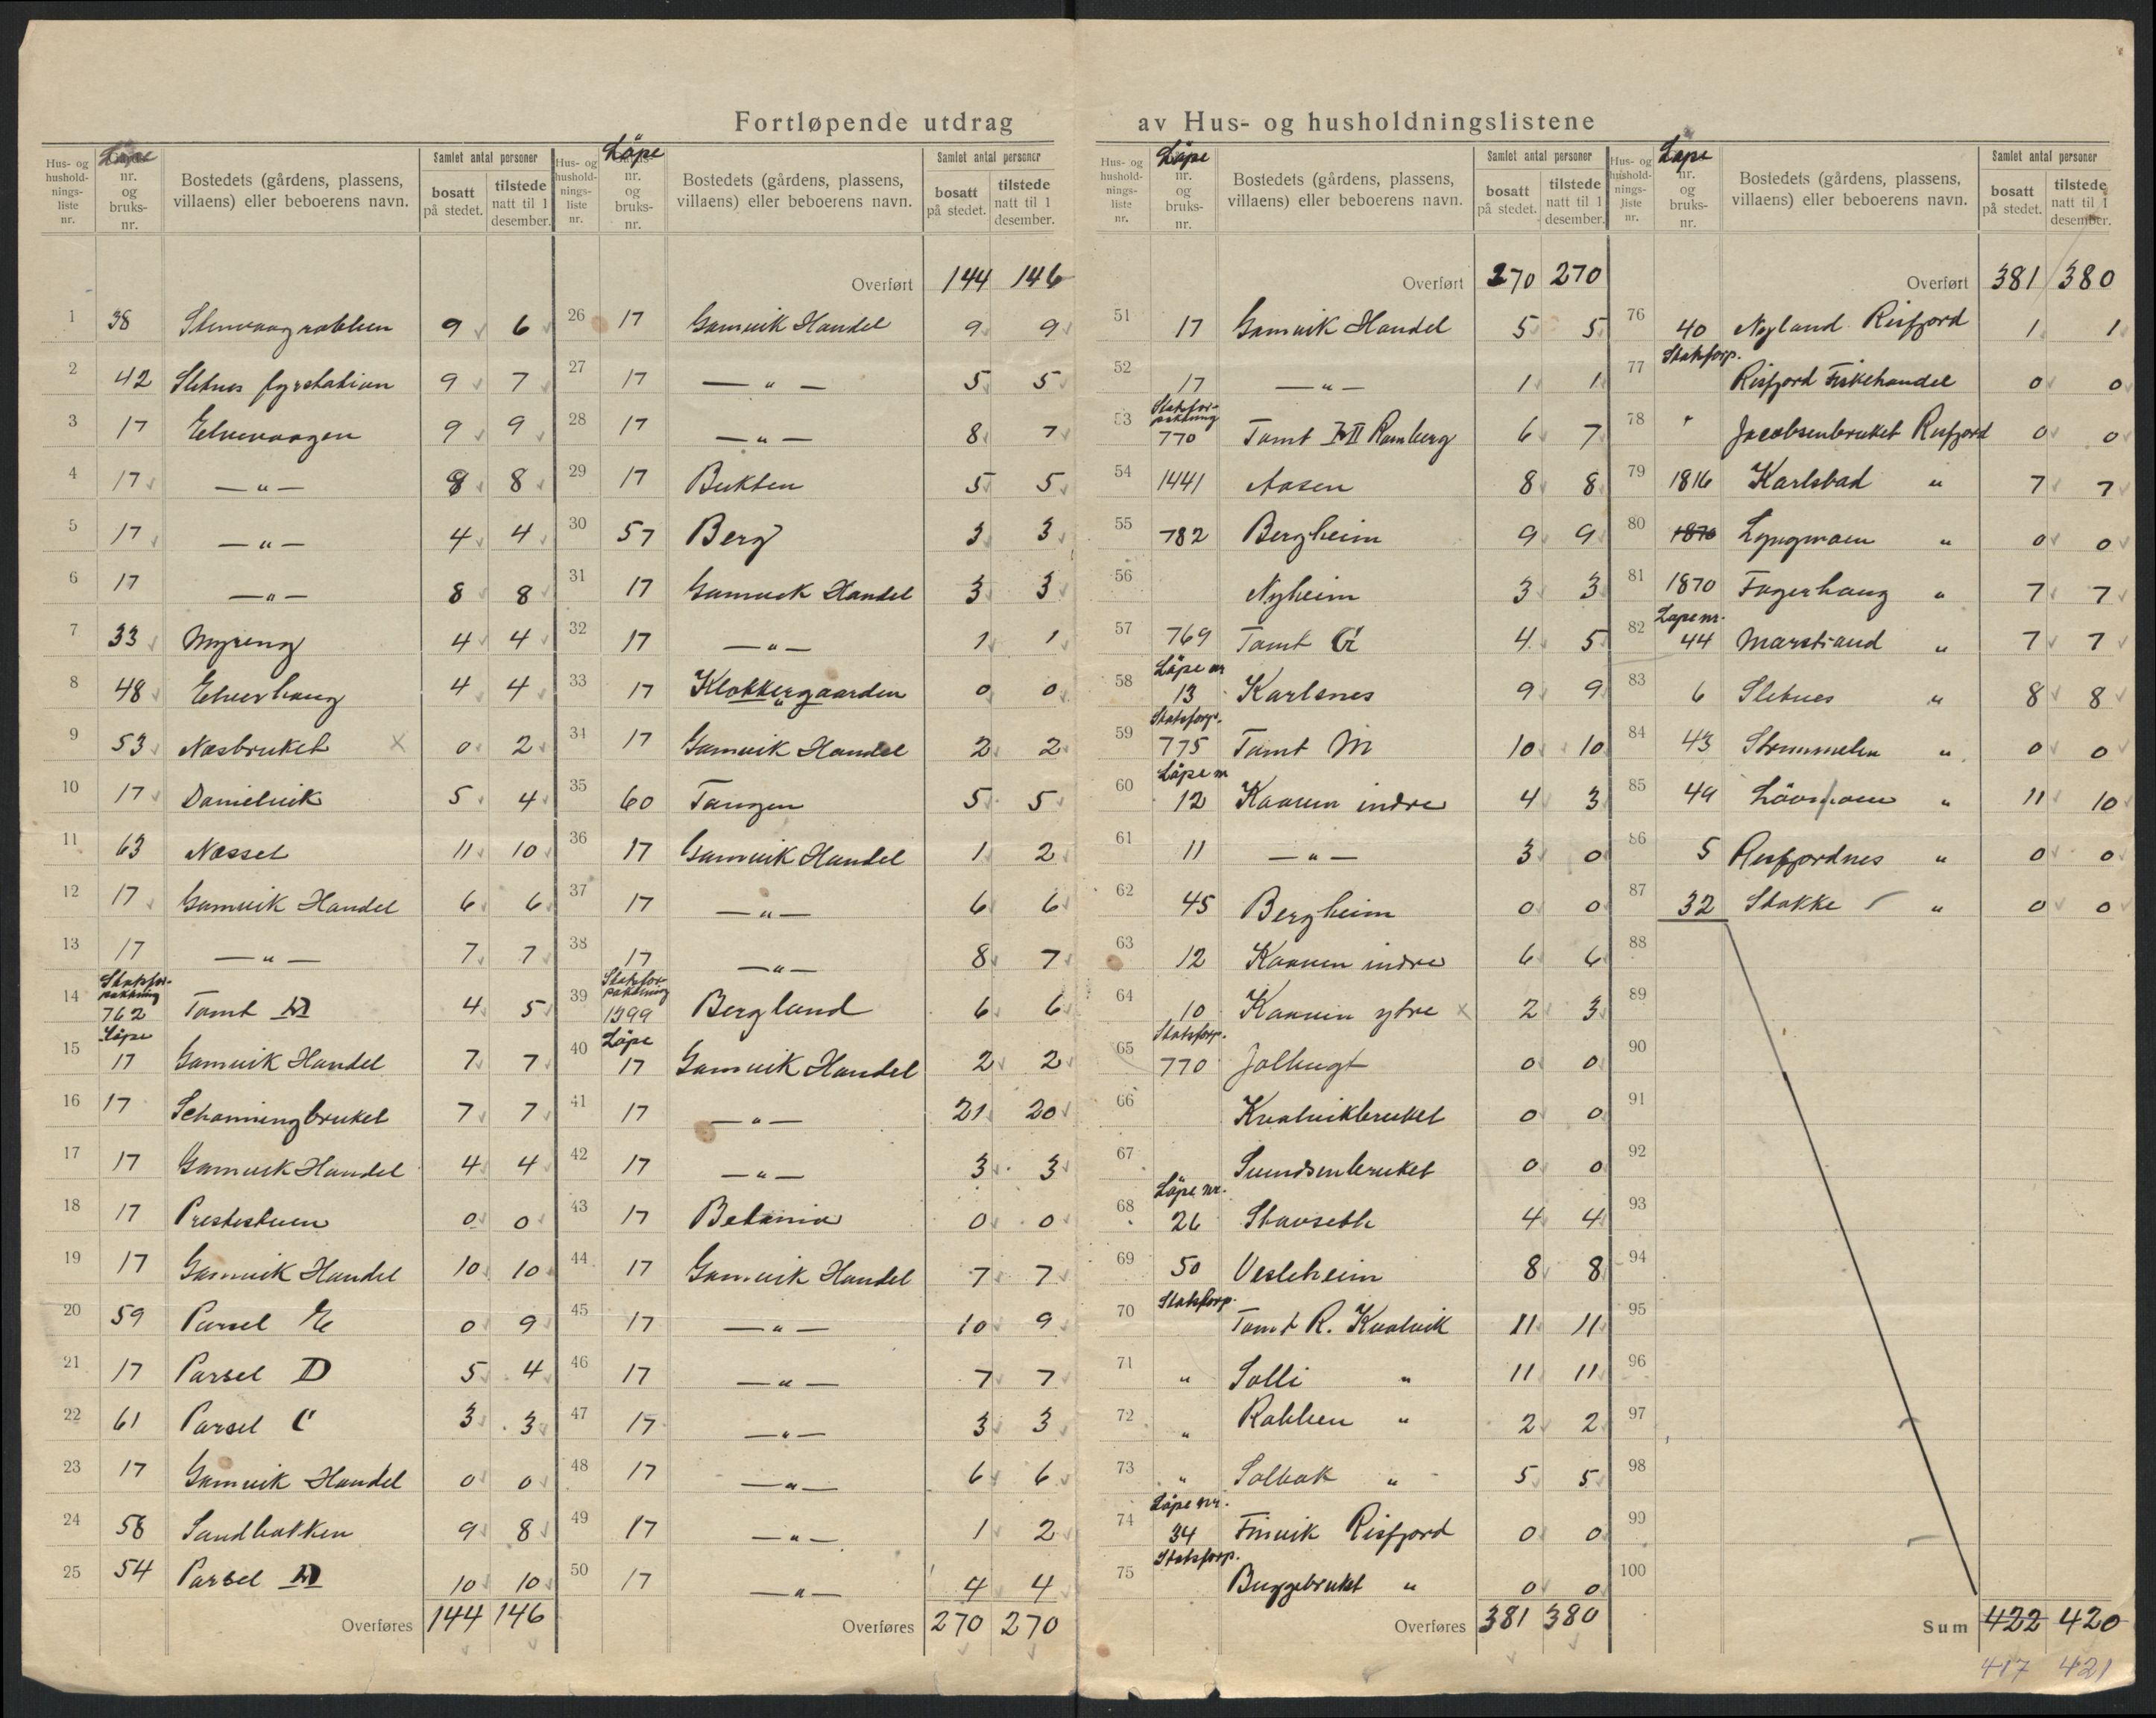 Fortløpende utdrag av Hus- og husholdningslistene
Hus- og husholdnings-liste nr. | Løpe nr. og bruks-nr. | Bostedets (gårdens, plassens, villaens) eller beboerens navn. | Samlet antal personer | bosatt på stedet. | tilstede natt til 1 desember.
1 38 Stenvaagnakken 9 6
2 42 Sletnes fyrstation 9 7
3 17 Elvevaagen 9 9
4 17 — " — 8 8
5 17 — " — 4 4
6 17 — " — 8 8
7 33 Myreng 4 4
8 48 Elverhaug 4 4
9 53 Næsbruket × 0 2
10 17 Danielvik 5 4
11 63 Næsset 11 10
12 17 Gamvik Handel 6 6
13 17 — " — 7 7
14 Statsfor-paktning 762 Tomt 4 5
15 Løpe 17 Gamvik Handel 7 7
16 17 Schanningbruket 7 7
17 17 Gamvik Handel 4 4
18 17 Prestestuen 0 0
19 17 Gamvik Handel 10 10
20 59 Parsel E 0 9
21 17 Parsel D 5 4
22 61 Parsel C 3 3
23 17 Gamvik Handel 0 0
24 58 Sandbakken 9 8
25 54 Parsel 10 10
Overføres 144 146
Hus- og husholdnings-liste nr. | Løpe nr. og bruks-nr. | Bostedets (gårdens, plassens, villaens) eller beboerens navn. | Samlet antal personer | bosatt på stedet. | tilstede natt til 1 desember.
Overført 144 146
26 17 Gamvik Handel 9 9
27 17 — " — 5 5
28 17 — " — 8 7
29 17 Bukten 5 5
30 57 Berg 3 3
31 17 Gamvik Handel 3 3
32 17 — " — 1 1
33 17 Klokkergaarden 0 0
34 17 Gamvik Handel 2 2
35 60 Tangen 5 5
36 17 Gamvik Handel 1 2
37 17 — " — 6 6
38 17 — " — 8 7
39 Statsfor-paktning 1399 Bergland 6 6
40 Løpe 17 Gamvik Handel 2 2
41 17 — " — 21 20
42 17 — " — 3 3
43 17 Betania 0 0
44 17 Gamvik Handel 7 7
45 17 — " — 10 9
46 17 — " — 7 7
47 17 — " — 3 3
48 17 — " — 6 6
49 17 — " — 1 2
50 17 — " — 4 4
Overføres 270 270
Hus- og husholdnings-liste nr. | Løpe nr. og bruks-nr. | Bostedets (gårdens, plassens, villaens) eller beboerens navn. | Samlet antal personer | bosatt på stedet. | tilstede natt til 1 desember.
Overført 270 270
51 17 Gamvik Handel 5 5
52 17 — " — 1 1
53 Statsfor-paktning 770 Tomt II Ramberg 6 7
54 1441 Aasen 8 8
55 782 Bergheim 9 9
56 Nyheim 3 3
57 769 Tomt G 4 5
58 Løpe nr 13 Karlsnes 9 9
59 Statsforp. 775 Tomt M 10 10
60 Løpe nr 12 Kaaven indre 4 3
61 11 — " — 3 0
62 45 Bergheim 0 0
63 12 Kaaven indre 6 6
64 10 Kaaven ytre × 2 3
65 Statsforp. 770 Jolbugt 0 0
66 Kvalvikbruket 0 0
67 Svendsenbruket 0 0
68 Løpe nr. 26 Stavseth 4 4
69 50 Vesleheim 8 8
70 Statsforp. Tomt R. Kvalvik 11 11
71 " Solli " 11 11
72 " Rabben " 2 2
73 " Solbak " 5 5
74 Løpe nr. 34 Finvik Risfjord 0 0
75 Statsforp. Buggebruket " 0 0
Overføres 381 380
Hus- og husholdnings-liste nr. | Løpe nr. og bruks-nr. | Bostedets (gårdens, plassens, villaens) eller beboerens navn. | Samlet antal personer | bosatt på stedet. | tilstede natt til 1 desember.
Overført 381 380
76 40 Nyland Risfjord 1 1
77 Statsforp. Risfjord Fiskehandel 0 0
78 " Jacobsenbruket Risfjord 0 0
79 1816 Karlsbad " 7 7
80 1870 Lyngmoen " 0 0
81 1870 Fagerhaug " 7 7
82 Løpe nr. 44 Marstrand " 7 7
83 6 Sletnes " 8 8
84 43 Strømmelen " 0 0
85 49 Løvmoen " 11 10
86 5 Risfjordnes " 0 0
87 32 Stakke " 0 0
88
89
90
91
92
93
94
95
96
97
98
99
100
Sum 422 420
417 421